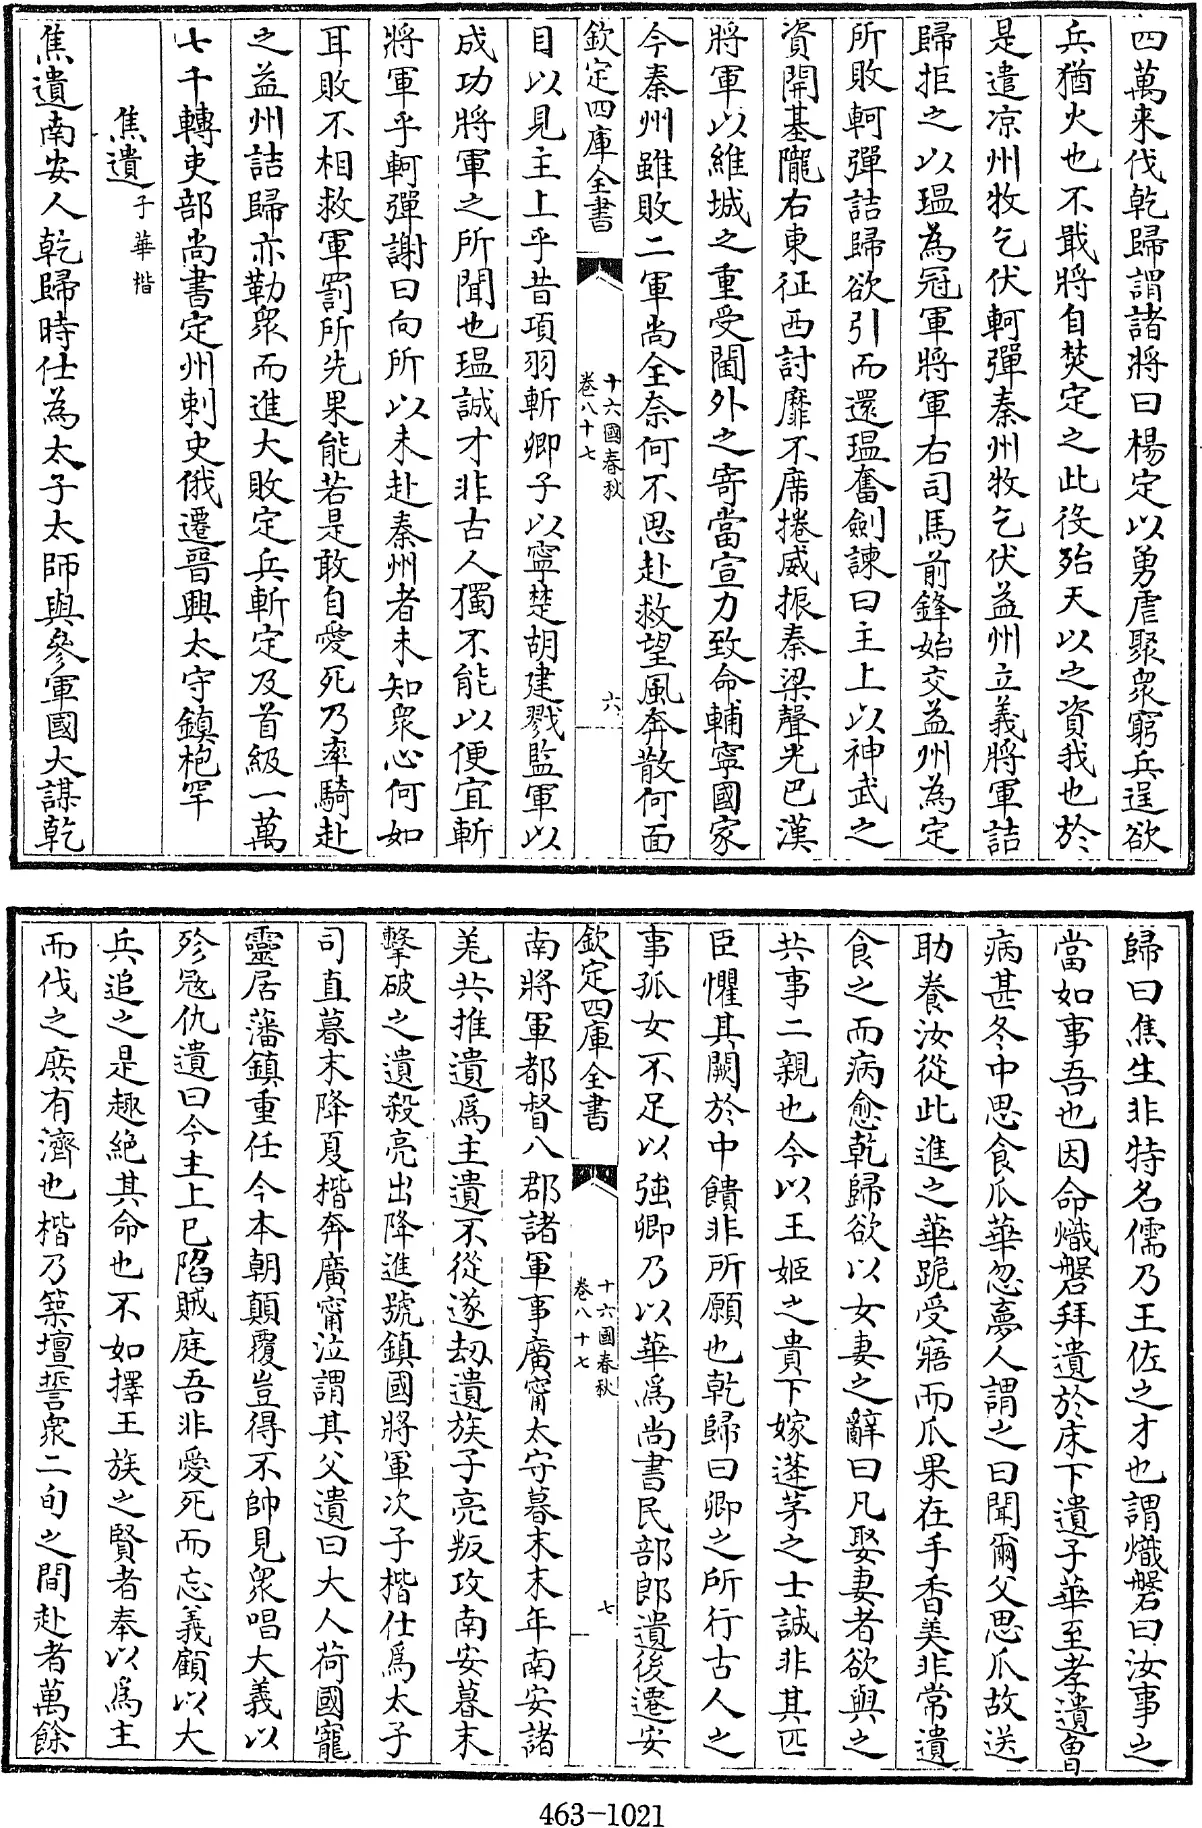 四萬来伐乾歸謂諸將曰楊定以勇虐聚衆窮兵逞欲
兵猶火也不戢將自焚定之此役殆天以之資我也於
是遣凉州牧乞伏軻彈秦州牧乞伏益州立義將軍詰
歸拒之以瑥為冠軍將軍右司馬前鋒始交益州為定
所敗軻彈詰歸欲引而還瑥奮劍諫曰主上以神武之
資開基隴右東征西討靡不席捲威振秦梁聲光巴漢
將軍以維城之重受閫外之寄當宣力致命輔寧國家
今秦州雖敗二軍尚全奈何不思赴救望風奔散何面
欽定四庫全書
十六國春秋
卷八十七
六
目以見主上乎昔項羽斬卿子以寧楚胡建戮監軍以
成功將軍之所聞也瑥誠才非古人獨不能以便宜斬
將軍乎軻彈謝曰向所以未赴秦州者未知衆心何如
耳敗不相救軍罰所先果能若是敢自愛死乃率騎赴
之益州詰歸亦勒衆而進大敗定兵斬定及首級一萬
七千轉吏部尚書定州刺史俄遷晉興太守鎮枹罕
焦遺子華楷
焦遺南安人乾歸時仕為太子太師與參軍國大謀乾
歸曰焦生非特名儒乃王佐之才也謂熾磐曰汝事之
當如事吾也因命熾磐拜遺於床下遺子華至孝遺曾
病甚冬中思食瓜華忽夢人謂之曰聞爾父思瓜故送
助養汝從此進之華跪受寤而瓜果在手香美非常遺
食之而病愈乾歸欲以女妻之辭曰凡娶妻者欲與之
共事二親也今以王姬之貴下嫁蓬茅之士誠非其匹
臣懼其闕於中饋非所願也乾歸曰卿之所行古人之
事孤女不足以強卿乃以華爲尚書民部郎遺後遷安
欽定四庫全書
十六國春秋
卷八十七
七
南將軍都督八郡諸軍事廣甯太守暮末末年南安諸
羌共推遺爲主遺不從遂劫遺族子亮叛攻南安暮末
擊破之遺殺亮出降進號鎮國將軍次子楷仕爲太子
司直暮末降夏楷奔廣甯泣謂其父遺曰大人荷國寵
靈居藩鎮重任今本朝顛覆豈得不帥見衆唱大義以
殄冦仇遺曰今主上已陷賊庭吾非愛死而忘義顧以大
兵追之是趣絶其命也不如擇王族之賢者奉以爲主
而伐之庶有濟也楷乃築壇誓衆二旬之間赴者萬餘
463-1021